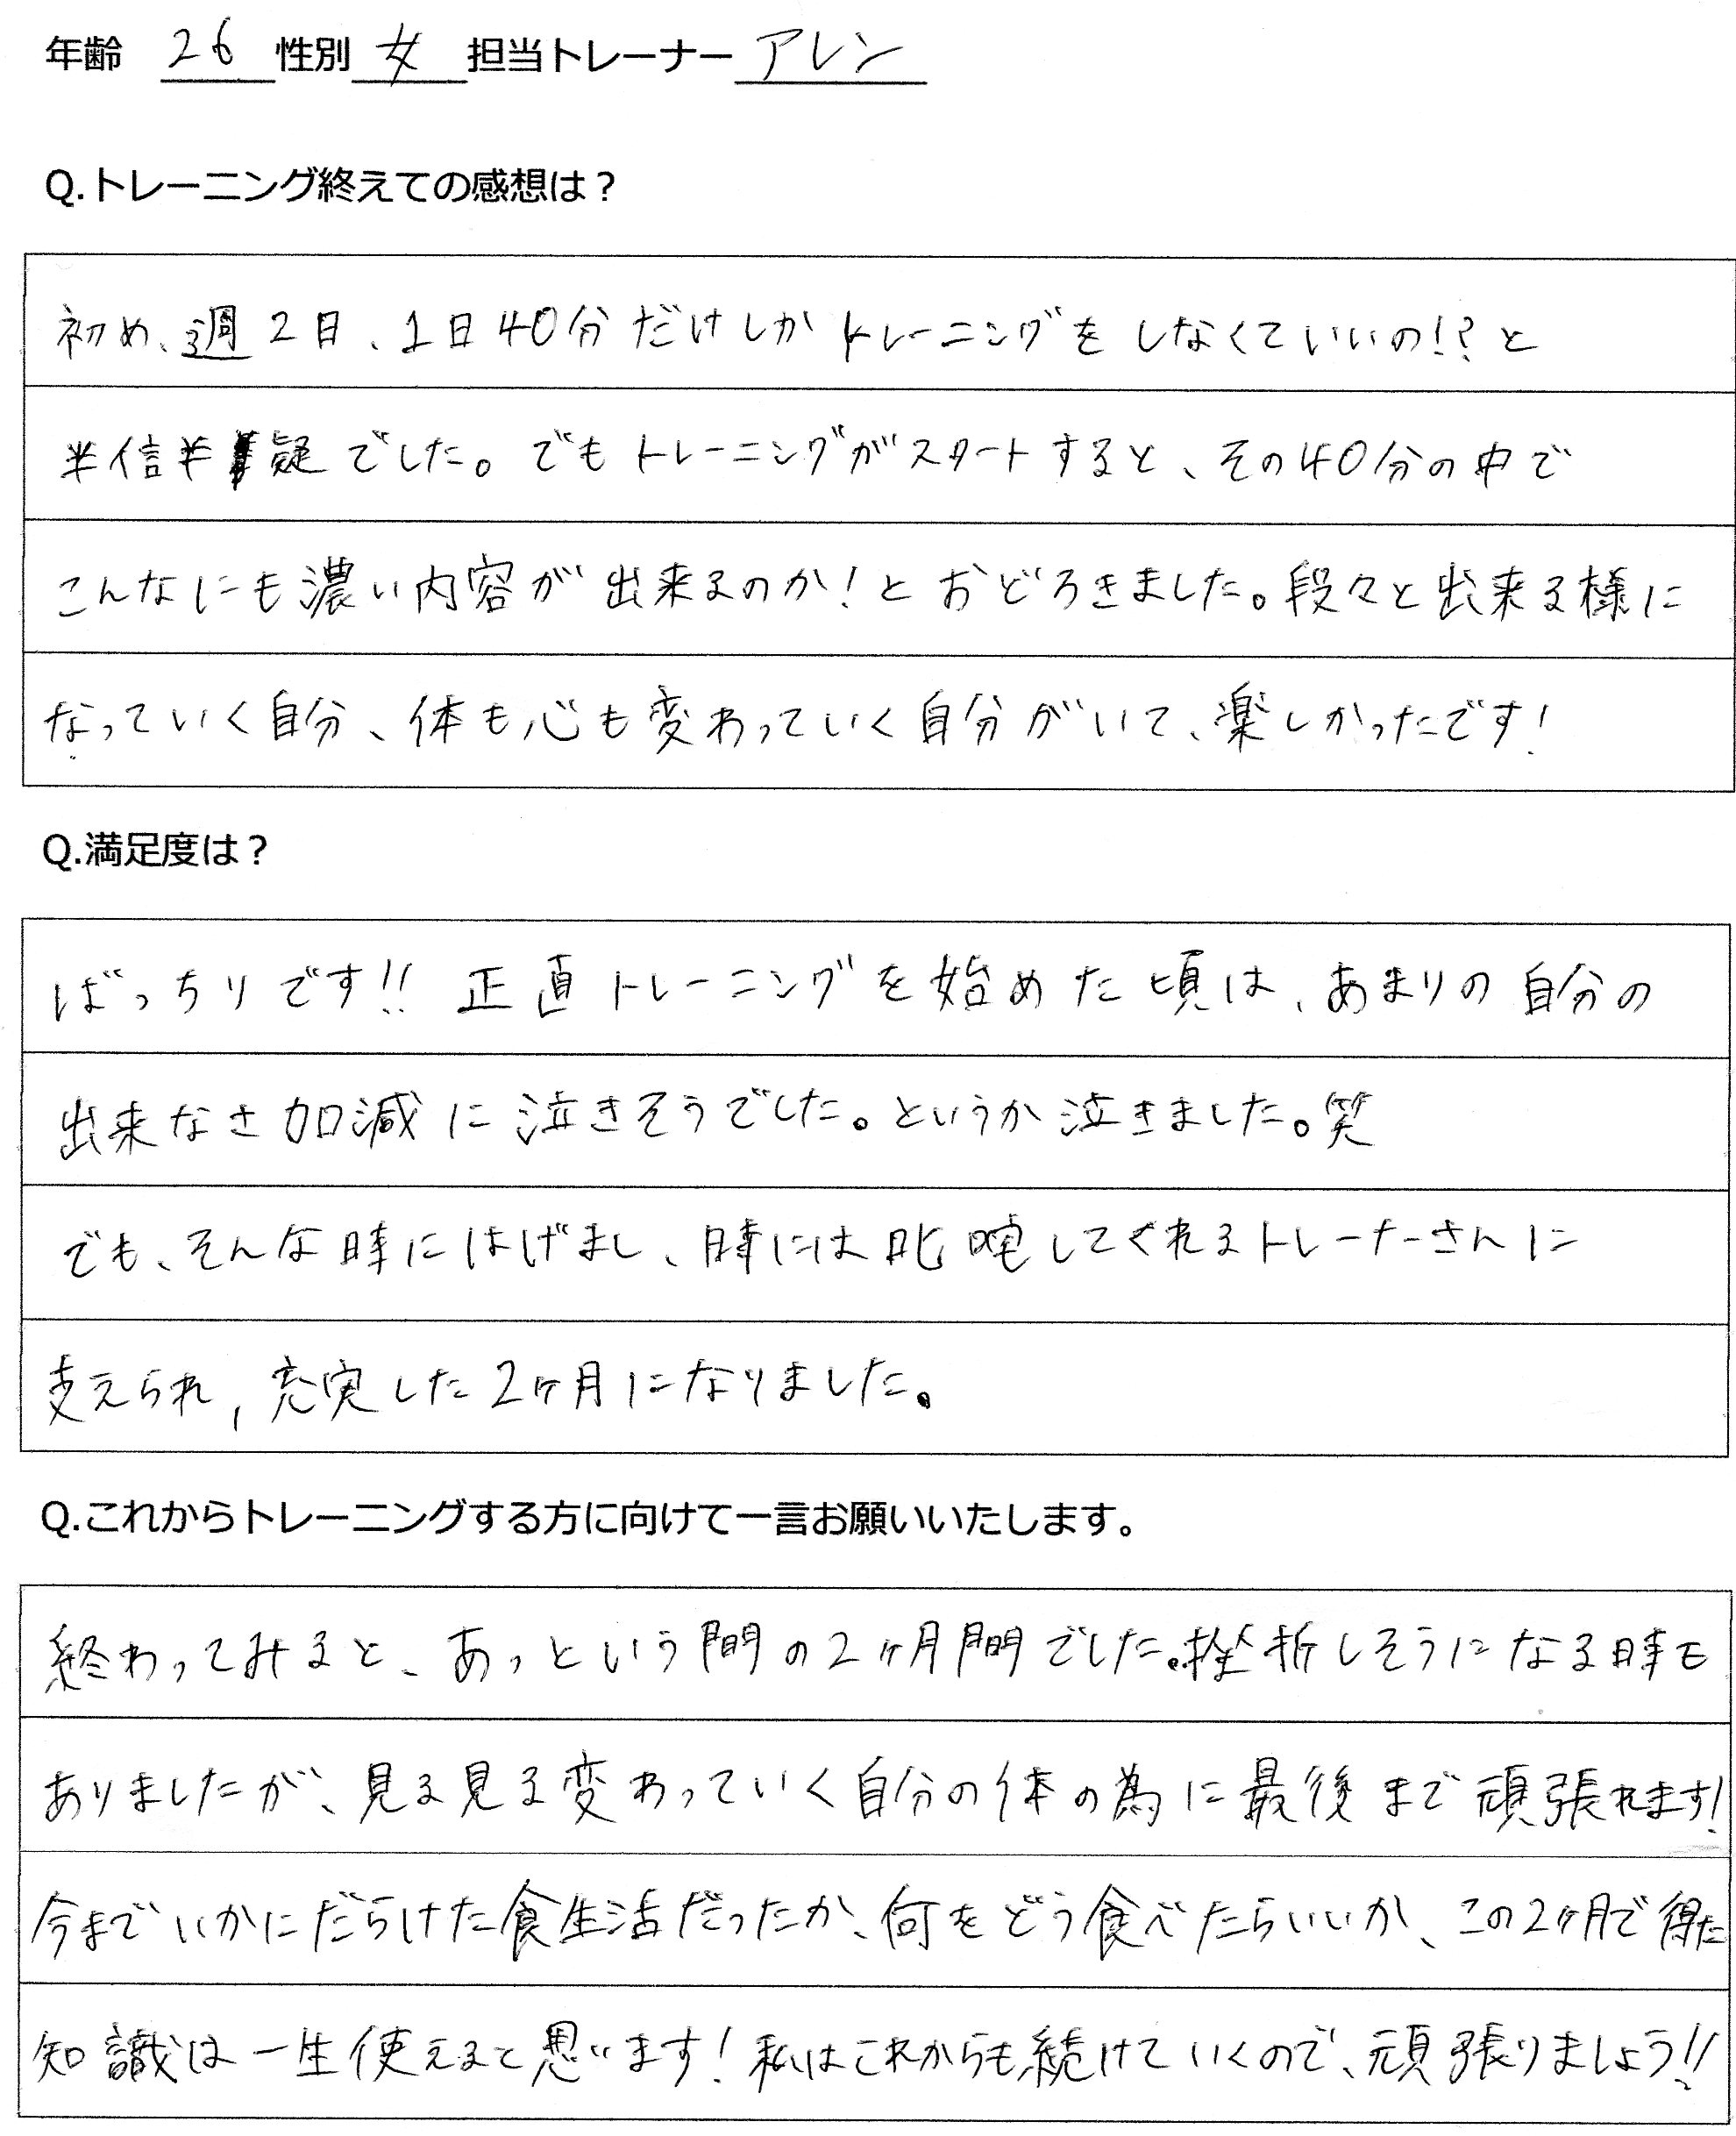 年齢 26 性別 女 担当トレーナー アレン
Q.トレーニング終えての感想は？
初め、週2日、1日40分だけしかトレーニングをしなくていいの!?と
半信半疑でした。でもトレーニングがスタートすると、その40分の中で
こんなにも濃い内容が出来るのか!とおどろきました。段々と出来る様に
なっていく自分、体も心も変わっていく自分がいて、楽しかったです!
Q.満足度は？
ばっちりです!! 正直トレーニングを始めた頃は、あまりの自分の
出来なさ加減に泣きそうでした。というか泣きました。笑
でも、そんな時にはげまし、時には叱咤してくれるトレーナーさんに
支えられ,充実した2ヶ月になりました。
Q.これからトレーニングする方に向けて一言お願いいたします。
終わってみると、あっという間の2ヶ月間でした。挫折しそうになる時も
ありましたが、見る見る変わっていく自分の体の為に最後まで頑張れます!
今までいかにだらけた食生活だったか、何をどう食べたらいいか、この2ヶ月で得た
知識は一生使えると思います!私はこれからも続けていくので、頑張りましょう!!